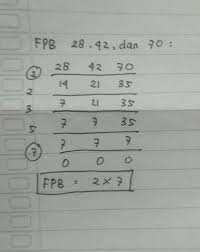 FPB 28, 42, dan 70 :
② 28 42 70
2 14 21 35
3 7 21 35
5 7 7 35
⑦ 7 7 7
0 0 0
FPB = 2 x 7